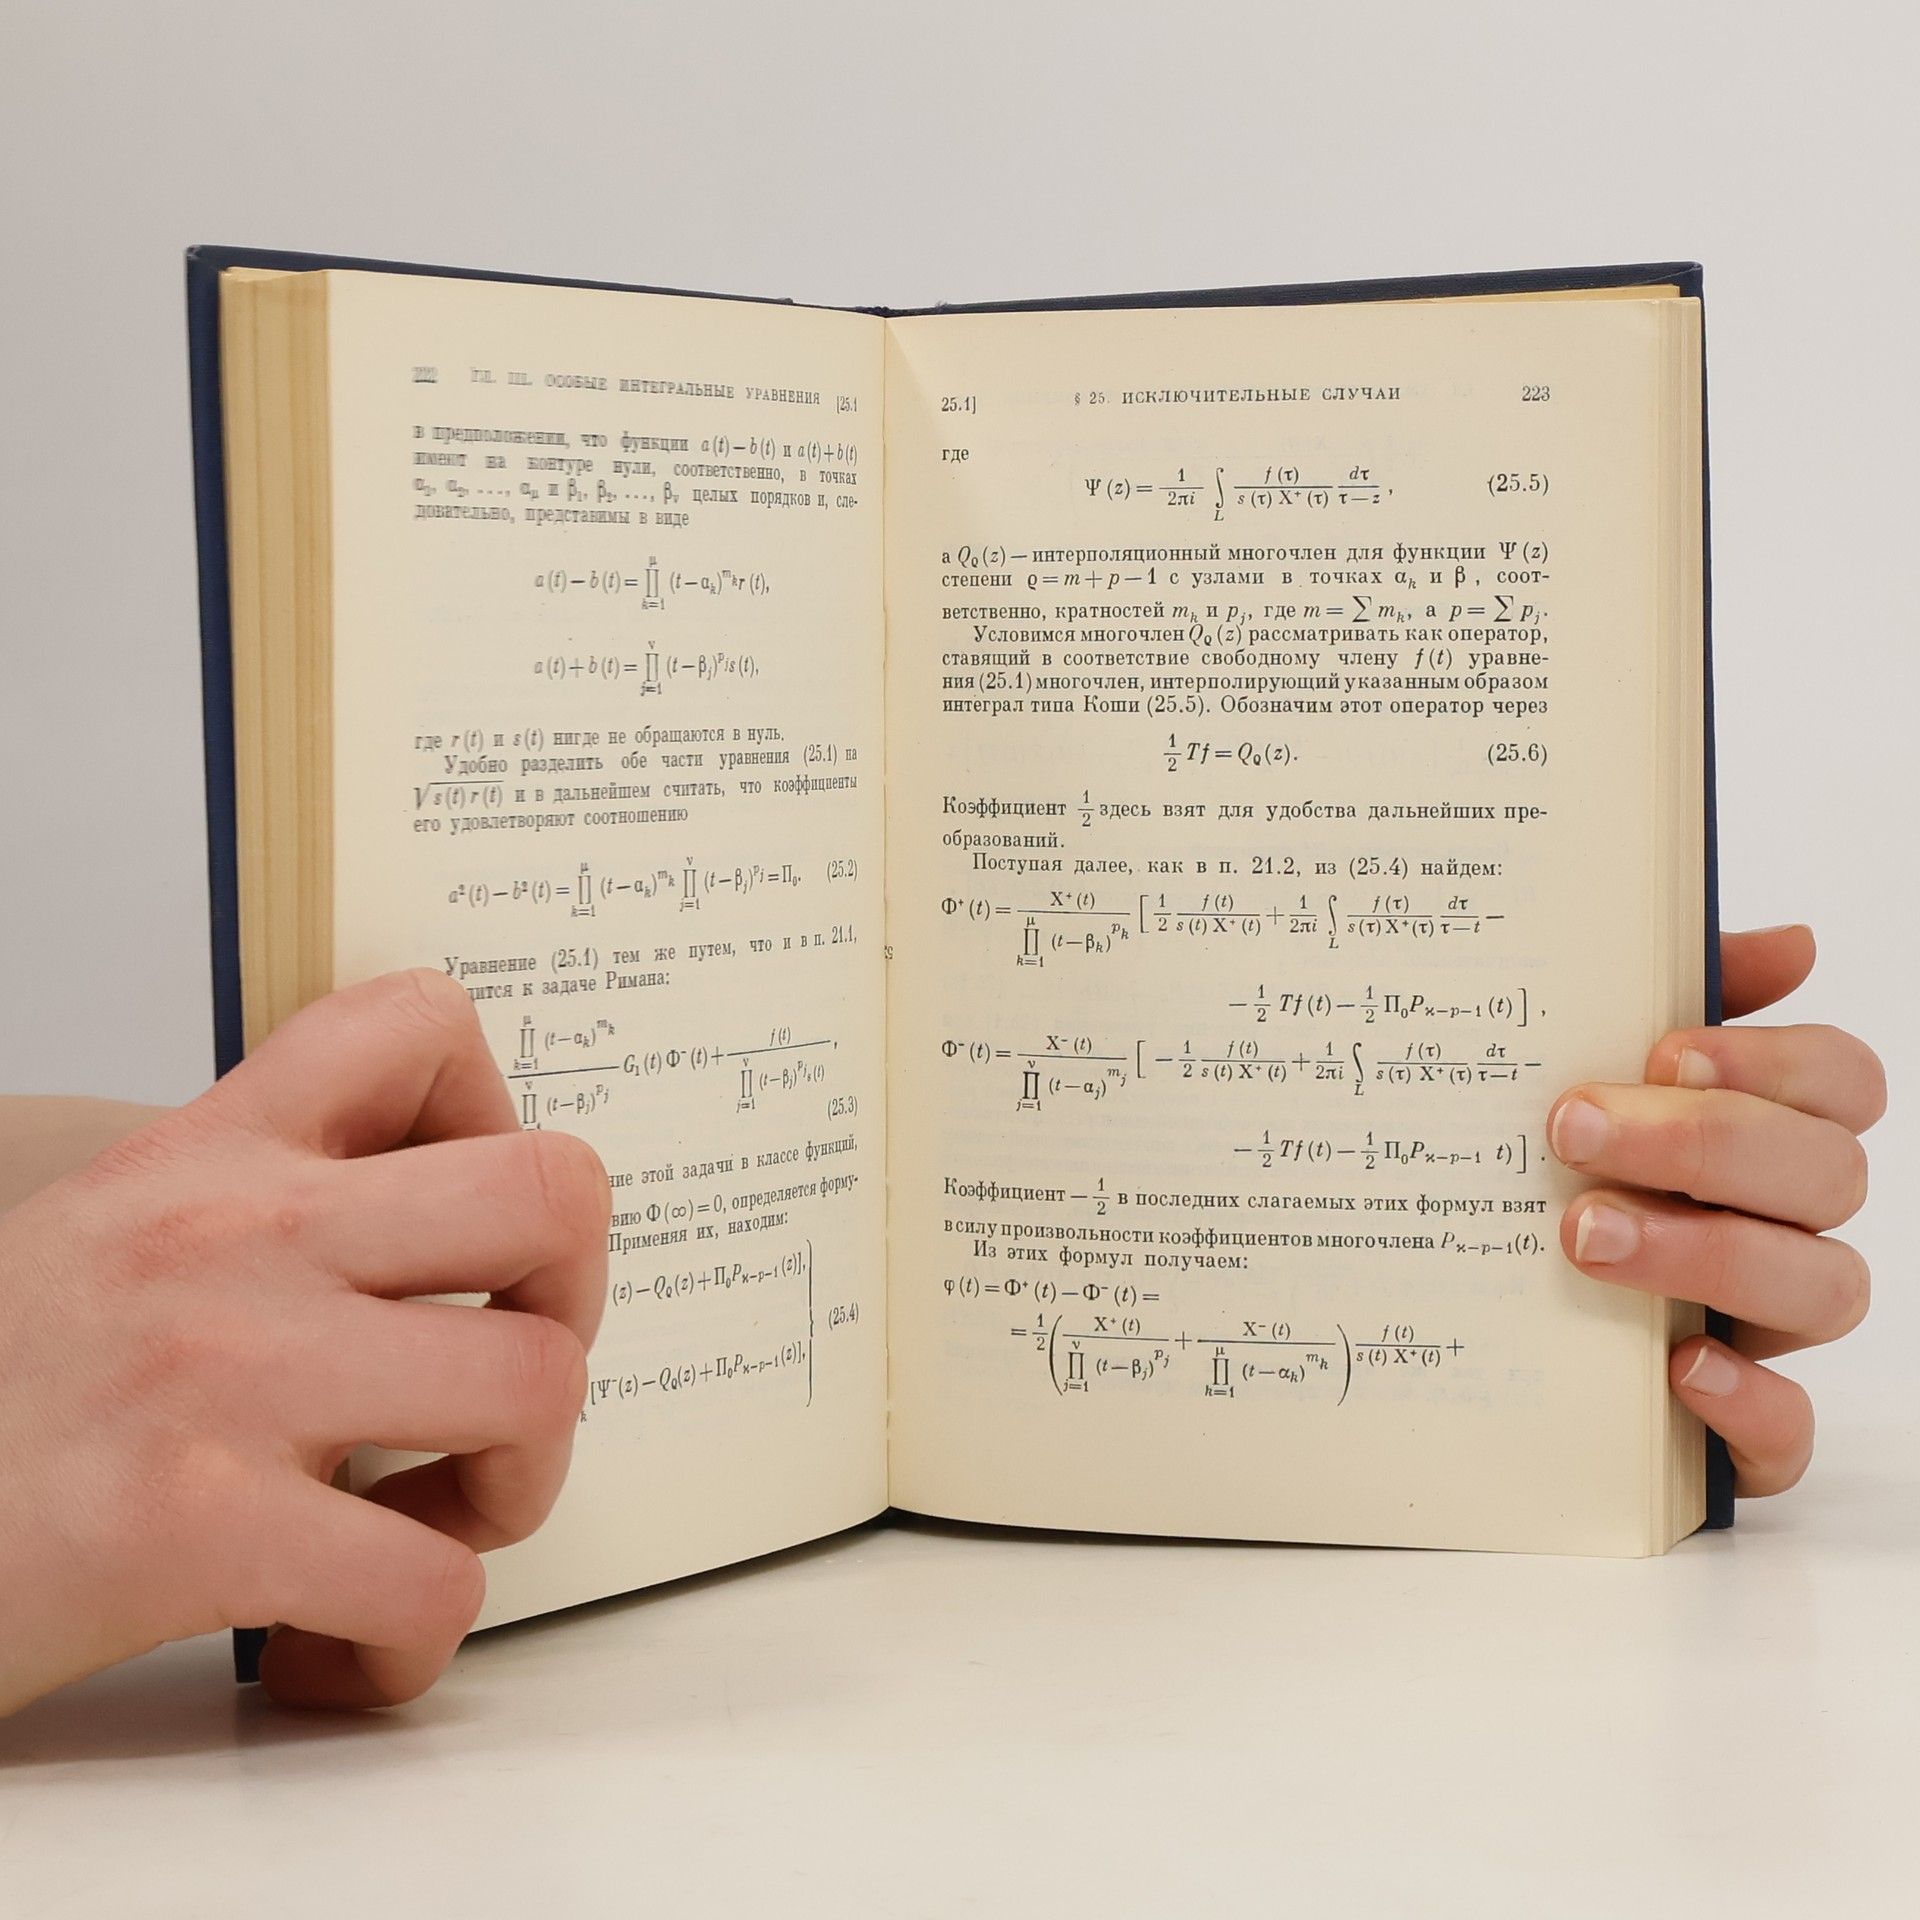 222 ГЛ. III. ОСОБЫЕ ИНТЕГРАЛЬНЫЕ УРАВНЕНИЯ [25.1
в предположении, что функции a(t)−b(t) и a(t)+b(t)
имеют на контуре нули, соответственно, в точках
α₁, α₂, ..., α_μ и β₁, β₂, ..., β_ν целых порядков и, сле-
довательно, представимы в виде
a(t)−b(t)=∏_{k=1}^{μ} (t−α_k)^{m_k} r(t),
a(t)+b(t)=∏_{j=1}^{ν} (t−β_j)^{p_j} s(t),
где r(t) и s(t) нигде не обращаются в нуль.
Удобно разделить обе части уравнения (25.1) на
√s(t)r(t) и в дальнейшем считать, что коэффициенты
его удовлетворяют соотношению
a²(t)−b²(t)=∏_{k=1}^{μ} (t−α_k)^{m_k} ∏_{j=1}^{ν} (t−β_j)^{p_j}=Π₀. (25.2)
Уравнение (25.1) тем же путем, что и в п. 21.1,
дится к задаче Римана:
∏_{k=1}^{μ} (t−α_k)^{m_k} / ∏^{ν} (t−β_j)^{p_j} G₁(t) Φ⁻(t)+ f(t) / ∏_{j=1}^{ν} (t−β_j)^{p_j} s(t),
(25.3)
ние этой задачи в классе функций,
вию Φ(∞)=0, определяется форму-
Применяя их, находим:
(z)−Q_ϱ(z)+Π₀P_{ϰ−p−1}(z)],
(25.4)
[Ψ⁻(z)−Q_ϱ(z)+Π₀P_{ϰ−p−1}(z)],
25.1] § 25. ИСКЛЮЧИТЕЛЬНЫЕ СЛУЧАИ 223
где
Ψ(z)= 1/2πi ∫_L f(τ)/s(τ) X⁺(τ) dτ/τ−z, (25.5)
а Q_ϱ(z)—интерполяционный многочлен для функции Ψ(z)
степени ϱ=m+p−1 с узлами в точках α_k и β , соот-
ветственно, кратностей m_k и p_j, где m=∑m_k, а p=∑p_j.
Условимся многочлен Q_ϱ(z) рассматривать как оператор,
ставящий в соответствие свободному члену f(t) уравне-
ния (25.1) многочлен, интерполирующий указанным образом
интеграл типа Коши (25.5). Обозначим этот оператор через
1/2 Tf=Q_ϱ(z). (25.6)
Коэффициент 1/2 здесь взят для удобства дальнейших пре-
образований.
Поступая далее, как в п. 21.2, из (25.4) найдем:
Φ⁺(t)= X⁺(t) / ∏_{k=1}^{μ} (t−β_k)^{p_k} [ 1/2 f(t)/s(t) X⁺(t) + 1/2πi ∫_L f(τ)/s(τ) X⁺(τ) dτ/τ−t −
− 1/2 Tf(t)− 1/2 Π₀P_{ϰ−p−1}(t) ] ,
Φ⁻(t)= X⁻(t) / ∏_{j=1}^{ν} (t−α_j)^{m_j} [ − 1/2 f(t)/s(t) X⁺(t) + 1/2πi ∫_L f(τ)/s(τ) X⁺(τ) dτ/τ−t −
− 1/2 Tf(t)− 1/2 Π₀P_{ϰ−p−1} t) ] .
Коэффициент − 1/2 в последних слагаемых этих формул взят
в силу произвольности коэффициентов многочлена P_{ϰ−p−1}(t).
Из этих формул получаем:
φ(t)=Φ⁺(t)−Φ⁻(t)=
= 1/2 ( X⁺(t) / ∏_{j=1}^{ν} (t−β_j)^{p_j} + X⁻(t) / ∏_{k=1}^{μ} (t−α_k)^{m_k} ) f(t)/s(t) X⁺(t) +